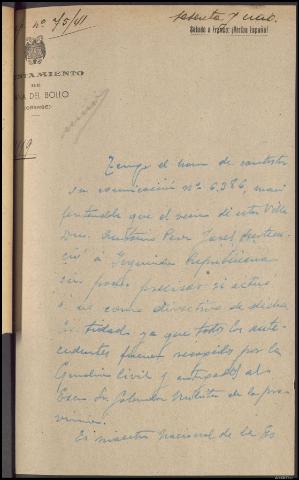 nº 75/41
sesenta y una.
Saludo a Franco: ¡Arriba España!
AYUNTAMIENTO
DE
VIANA DEL BOLLO
(ORENSE)
Tengo el honor de contestar
su comunicación nº 6.386, mani
festandole que el vecino de esta Villa
Don Antonio Perez
à Izquierda Republicana
sin poder precisar si actuo
ó no como directivo de dicha
Entidad ya que todos los ante-
cedentes fueron recogidos por la
Guardia Civil y entregados al
Excmo Sr. Gobernador Militar de la pro
vincia.
Es maestro Nacional de la Es